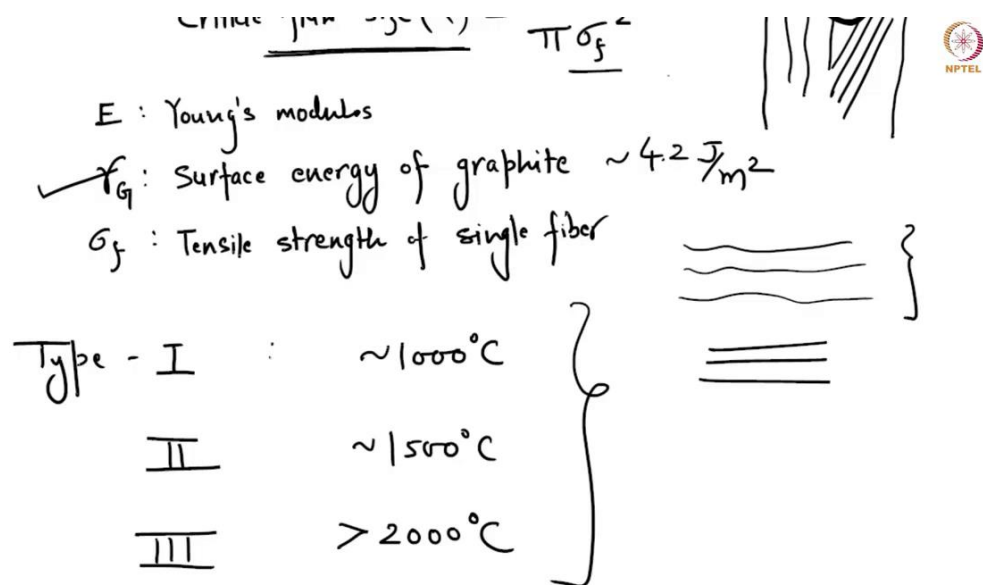 π σf²
NPTEL
E : Young's modulos
γG : Surface energy of graphite ~ 4.2 J/m²
σf : Tensile strength of single fiber
Type - I : ~1000°C
II ~1500°C
III > 2000°C